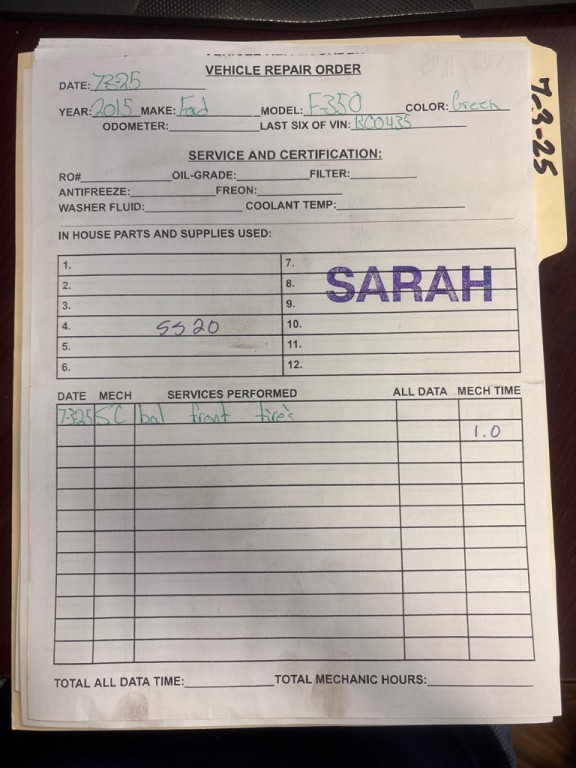 VEHICLE REPAIR ORDER
DATE: 7-2-25
YEAR: 2015 MAKE: Ford MODEL: F-350 COLOR: Green
ODOMETER: LAST SIX OF VIN:
7-3-25
SERVICE AND CERTIFICATION:
RO# OIL-GRADE: FILTER:
ANTIFREEZE: FREON:
WASHER FLUID: COOLANT TEMP:
IN HOUSE PARTS AND SUPPLIES USED:
1. 7.
2. 8. SARAH
3. 9.
4. SS20 10.
5. 11.
6. 12.
DATE MECH SERVICES PERFORMED ALL DATA MECH TIME
7-3-25 SC bal front tire's
1.0
TOTAL ALL DATA TIME: TOTAL MECHANIC HOURS: